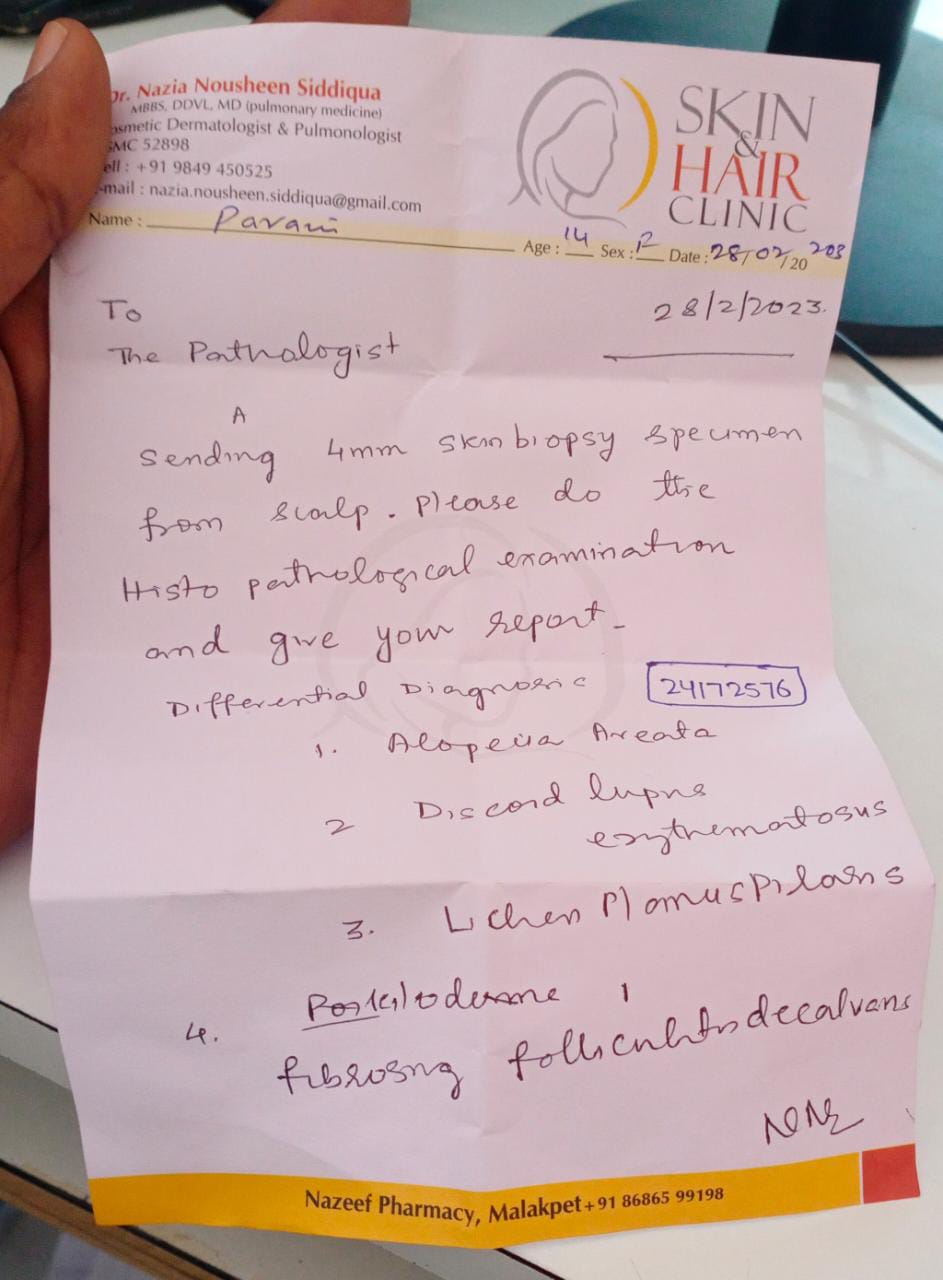 Dr. Nazia Nousheen Siddiqua
MBBS, DDVL, MD (pulmonary medicine)
osmetic Dermatologist & Pulmonologist
MC 52898
ell : +91 9849 450525
-mail : nazia.nousheen.siddiqua@gmail.com
SKIN
&
HAIR
CLINIC
Name :
Age : 14 Sex : Date : 28/02/20 203
28/2/2023.
To
The Pathologist
A
Sending 4mm skin biopsy specimen
from scalp. Please do the
Histo pathological examination
and give your report-
Differential Diagnosis
24172576
1. Alopecia Areata
2 Discoid lupus
erythematosus
3. Lichen Planus Pilaris
4.
fibrosing folliculitis decalvans
Nazeef Pharmacy, Malakpet +91 86865 99198